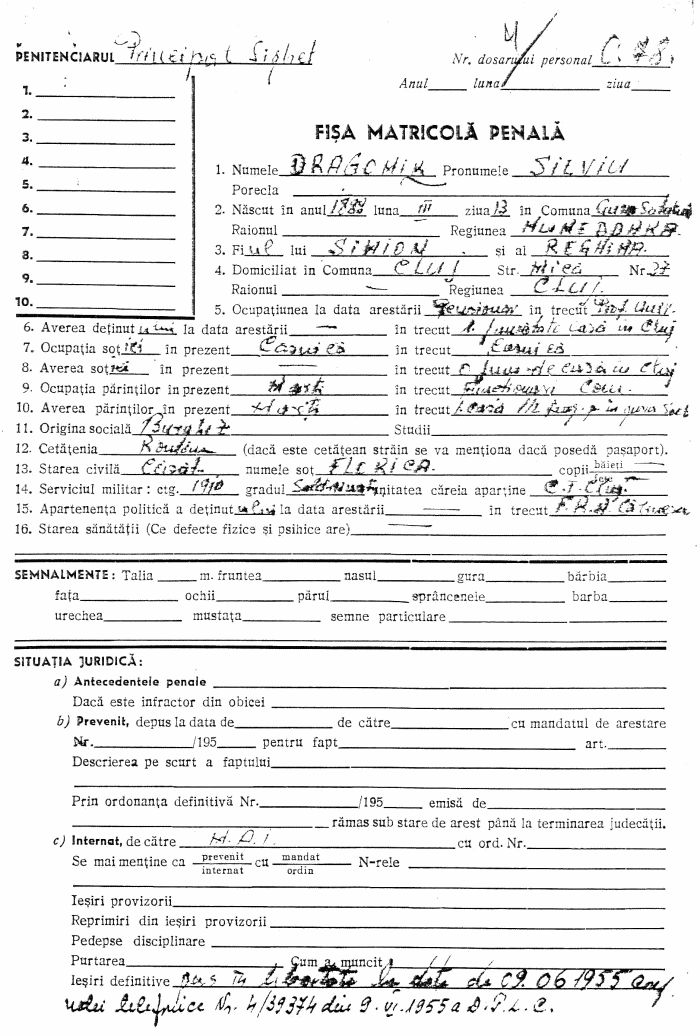 PENITENCIARUL Principal Sighet
Nr. dosarului personal C. 78.
Anul luna ziua
1.
2.
3.
4.
5.
6.
7.
8.
9.
10.
FIȘA MATRICOLĂ PENALĂ
1. Numele DRAGOMIR Pronumele SILVIU
Porecla
2. Născut în anul 1888 luna III ziua 13 în Comuna Gura
Raionul Regiunea HUNEDOARA
3. Fiul lui SIMION și al REGHINA
4. Domiciliat în Comuna CLUJ Str. Mică Nr. 27
Raionul — Regiunea CLUJ.
5. Ocupațiunea la data arestării Pensionar în trecut Prof. Univ.
6. Averea deținutului la data arestării — în trecut casă în Cluj
7. Ocupația soției în prezent Casnică în trecut Casnică
8. Averea soției în prezent — în trecut de casă în Cluj
9. Ocupația părinților în prezent Morți în trecut Funcționari
10. Averea părinților în prezent Morți în trecut casă
11. Origina socială Burgheză Studii
12. Cetățenia Română (dacă este cetățean străin se va menționa dacă posedă pașaport).
13. Starea civilă Căsăt. numele soț FLORICA copii băieți — fete
14. Serviciul militar: ctg. 1910 gradul Soldat unitatea căreia aparține C.T. Cluj
15. Apartenența politică a deținutului la data arestării — în trecut F.R.N.
16. Starea sănătății (Ce defecte fizice și psihice are) —
SEMNALMENTE: Talia m. fruntea nasul gura bărbia
fața ochii părul sprâncenele barba
urechea mustața semne particulare
SITUAȚIA JURIDICĂ:
a) Antecedentele penale
Dacă este infractor din obicei
b) Prevenit, depus la data de de către cu mandatul de arestare
Nr. /195 pentru fapt art.
Descrierea pe scurt a faptului
Prin ordonanța definitivă Nr. /195 emisă de
rămas sub stare de arest până la terminarea judecății.
c) Internat, de către M.A.I. cu ord. Nr.
Se mai menține ca prevenit internat cu mandat ordin N-rele
Ieșiri provizorii
Reprimiri din ieșiri provizorii
Pedepse disciplinare
Purtarea Cum a muncit
Ieșiri definitive pus în libertate la data de 09.06 1955 conf.
notei telefonice Nr. 4/39374 din 9.VI.1955 a D.P.L.C.